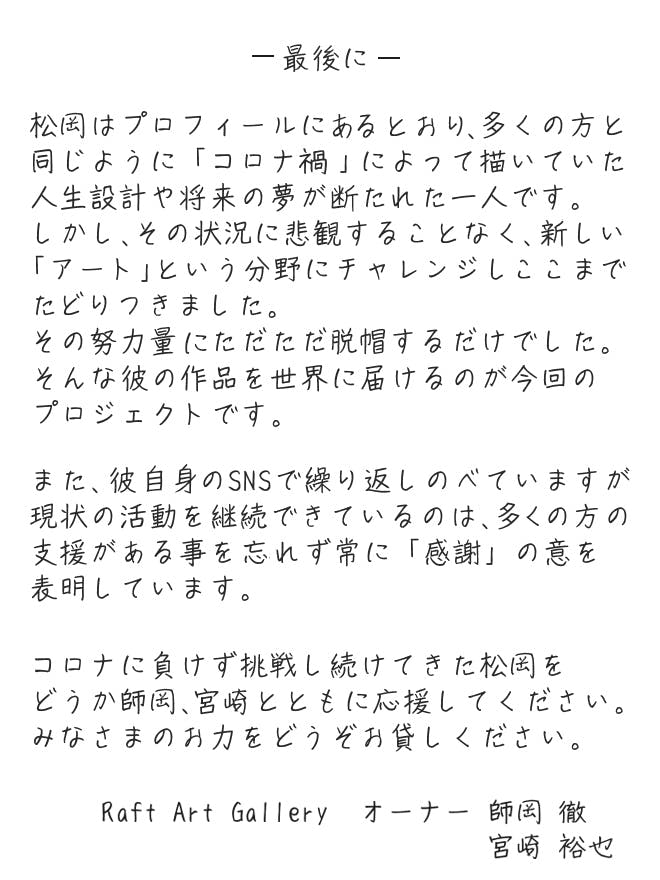 ― 最後に ―
松岡はプロフィールにあるとおり、多くの方と
同じように「コロナ禍」によって描いていた
人生設計や将来の夢が断たれた一人です。
しかし、その状況に悲観することなく、新しい
「アート」という分野にチャレンジしここまで
たどりつきました。
その努力量にただただ脱帽するだけでした。
そんな彼の作品を世界に届けるのが今回の
プロジェクトです。
また、彼自身のSNSで繰り返しのべていますが
現状の活動を継続できているのは、多くの方の
支援がある事を忘れず常に「感謝」の意を
表明しています。
コロナに負けず挑戦し続けてきた松岡を
どうか師岡、宮崎とともに応援してください。
みなさまのお力をどうぞお貸しください。
Raft Art Gallery オーナー 師岡 徹
宮崎 裕也